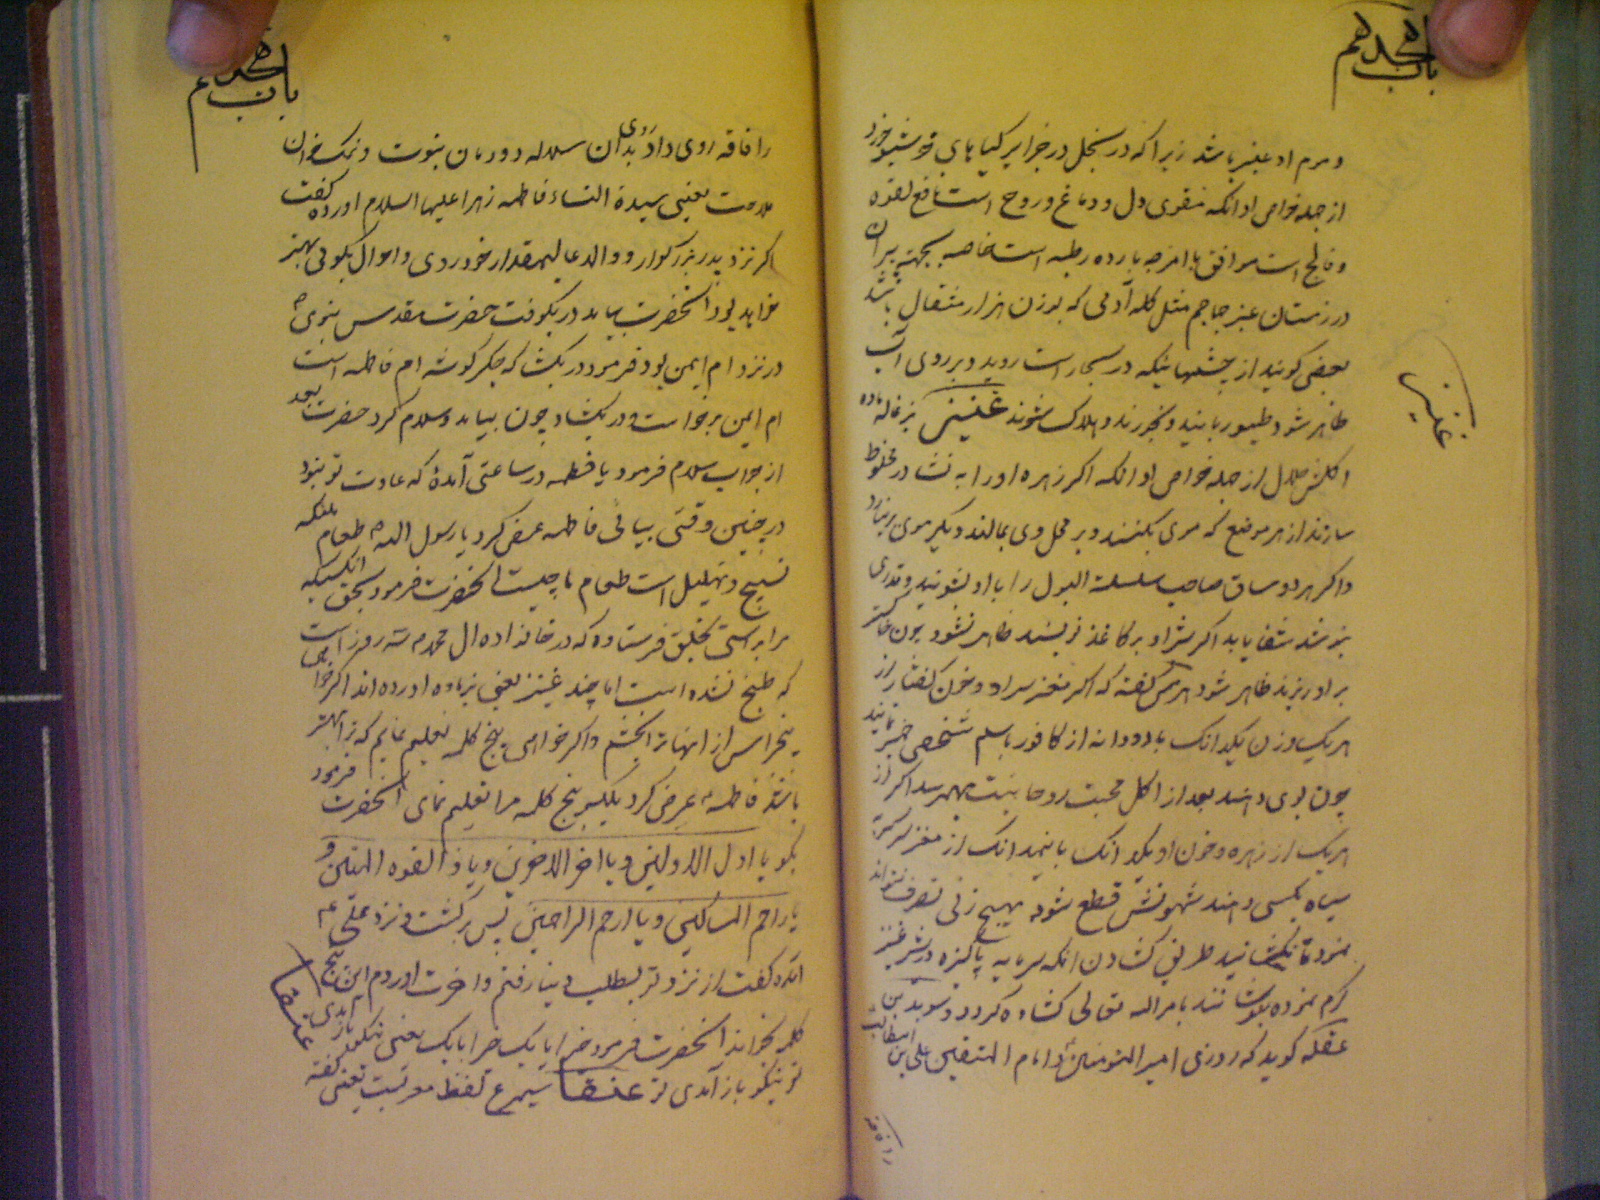 باب هجدهم
و سرم او عنبر باشد زیرا که در سنجل در جزایر کیاهای خوشبو خورد
از جمله خواص او انکه مقوی دل و دماغ و روح است نافع لقوه
و فالج است موافق با امزجه بارده رطبه است خاصه بجهته پیران
در زمستان عنبر جماجم مثل کله آدمی که بوزن هزار مثقال باشد
بعضی کویند از چشمهاییکه در بحار است روید و بر روی آب
ظاهر شود طیور ربایند و بخورند و هلاک شوند عنیز بزغاله ماده
اکلش حلال از جمله خواص او انکه اکر زهره او را به در مخلوط
سازند از هر موضع که موی بکنند و بر محل وی بمالند دیکر موی برنیارد
و اکر هر دو ساق صاحب سلسلة البول را با او بشویند و قدری
بنوشند شفا یابد اکر او بر کاغذ نویسند ظاهر نشود چون خاکستر
بر او ریزند ظاهر شود هرمس کفته که اکر مغز سر او و خون کفتار از
هریک وزن یکدانک با دو دانه از کافور باسم شخصی خمیر نمایند
چون بوی دهند بعد از اکل محبت روحانیت بهم رسد اکر از
هریک از زهره و خون او یکدانک با نیمدانک از مغز سر کربه
سیاه بکسی دهند شهوتش قطع شود بهیچ زنی تصرف نتواند
نمود تا نکشانید طریق کشادن انکه سرمایه پاکیزه در شیر عنیز
کرم نموده بنوشانند بامر اله تعالی کشاده کردد و سوید بن
عقله کوید که روزی امیر المومنین و امام المتقین علی بن ابیطالب
عنیز
را فاقه
باب هجدهم
را فاقه روی داد روی بدان سلاله دودمان نبوت و نمک خوان
ملاحت یعنی سیدة النساء فاطمه زهرا علیها السلام اورده کفت
اکر نزد پدر بزرکوار و والد عالیمقدار خود روی و احوال بکوئی بهتر
خواهد بود انحضرت بیامد در بکوفت حضرت مقدس نبوی ص
در نزد ام ایمن بود فرمود در بکشا که جکر کوشه ام فاطمه است
ام ایمن برخواست و در بکشاد چون بیامد و سلام کرد حضرت بعد
از جواب سلام فرمود یا فاطمه در ساعتی آمدهٔ که عادت تو نبود
در چنین وقتی بیائی فاطمه عرض کرد یا رسول الله ص طعام ملئکه
تسبیح و تهلیل است طعام ما چیست انحضرت فرمود بحق انکسیکه
مرا براستی بخلق فرستاده که در خانواده ال محمد سه روز است
که طبخ نشده است اما چند عنیز یعنی بزماده اورده اند اکر خواهی
پنج راس از انها بتو بخشم و اکر خواهی پنج کلمه تعلیم نمایم که ترا بهتر
باشد فاطمه عرض کرد بلکه پنج کلمه مرا تعلیم نمای انحضرت فرمود
بکو یا اول الاولین و یا اخر الاخرین و یا ذا القوه المتین و
یا راحم المساکین و یا ارحم الراحمین پس برکشت و نزد علی ع
امده کفت از نزد تو بطلب دنیا رفتم و اخرت اوردم این پنج
کلمه بخواند انحضرت فرمود خیر ایابک خیر ایابک یعنی نیکو باز آمدی
تو نیکو باز آمدی تو عنقا سیمرغ لفظ مونثیست یعنی کفته
عنقا